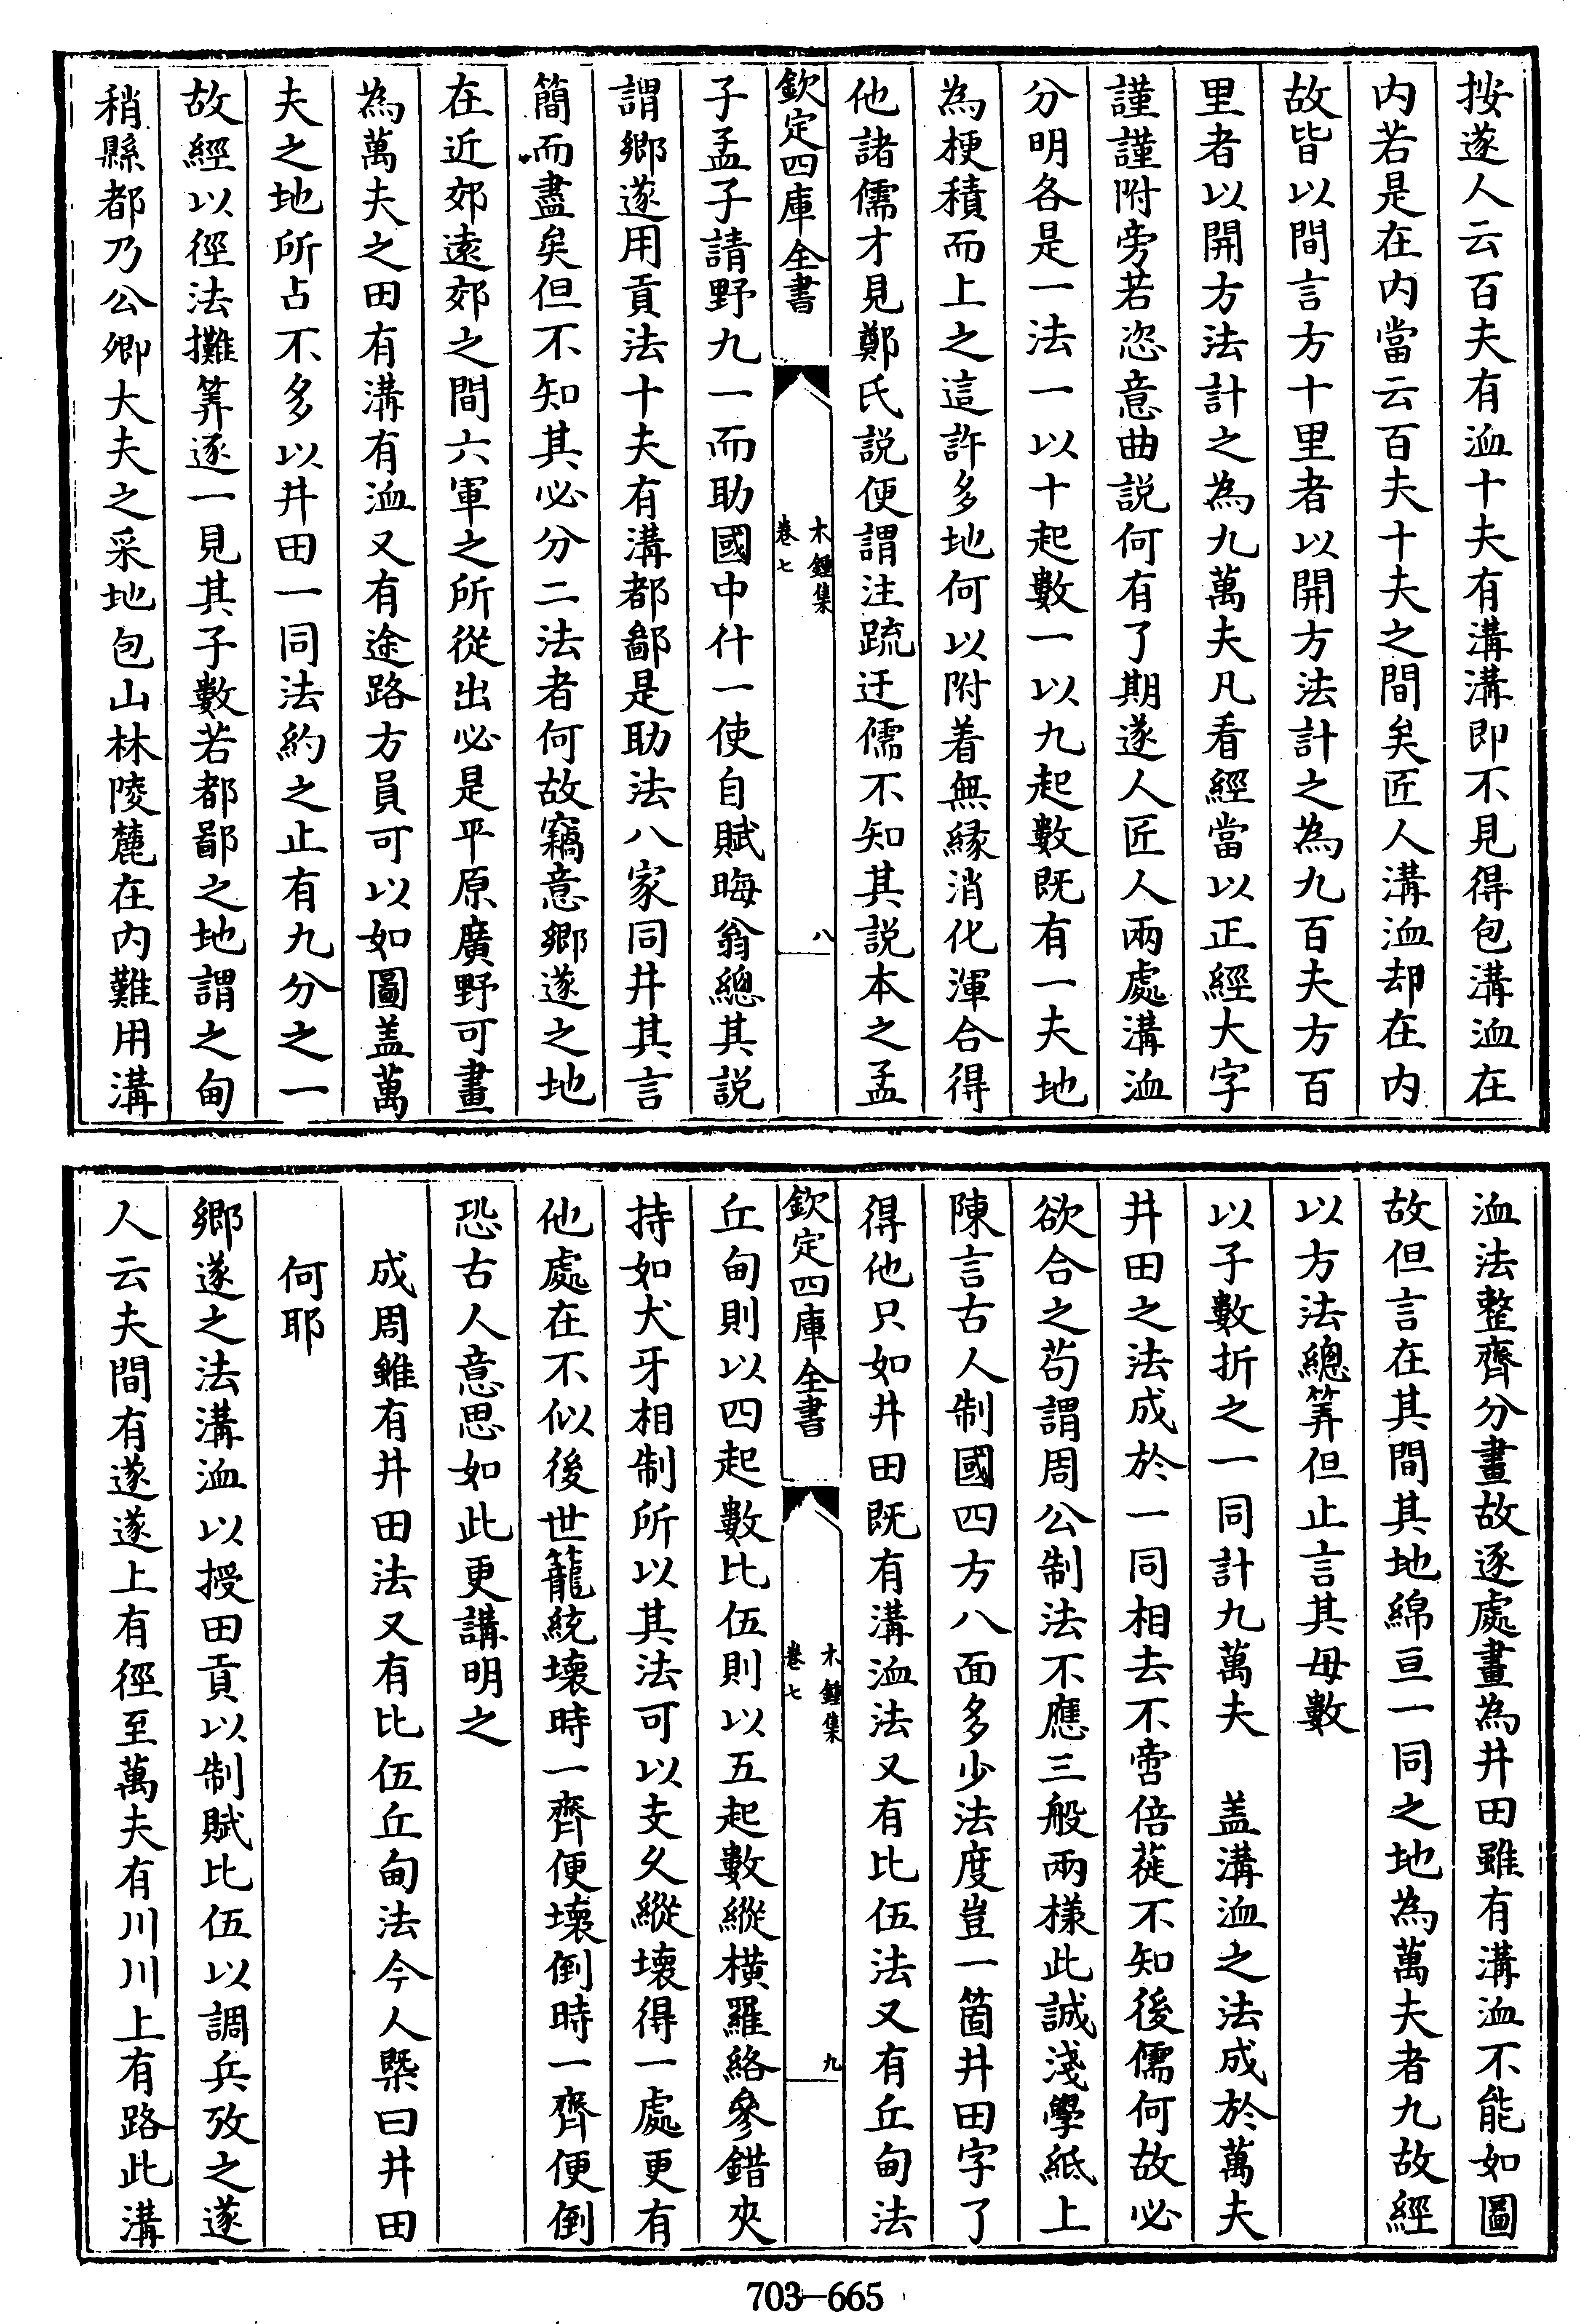 按遂人云百夫有洫十夫有溝溝即不見得包溝洫在
内若是在内當云百夫十夫之間矣匠人溝洫却在内
故皆以間言方十里者以開方法計之為九百夫方百
里者以開方法計之為九萬夫凡看經當以正經大字
謹謹附旁若恣意曲説何有了期遂人匠人兩處溝洫
分明各是一法一以十起數一以九起數既有一夫地
為梗積而上之這許多地何以附着無縁消化渾合得
他諸儒才見鄭氏説便謂注䟽迂儒不知其説本之孟
欽定四庫全書
木鍾集
卷七
八
子孟子請野九一而助國中什一使自賦晦翁總其説
謂鄉遂用貢法十夫有溝都鄙是助法八家同井其言
簡而盡矣但不知其必分二法者何故竊意鄉遂之地
在近郊逺郊之間六軍之所從出必是平原廣野可畫
為萬夫之田有溝有洫又有途路方員可以如圖盖萬
夫之地所占不多以井田一同法約之止有九分之一
故經以徑法攤筭逐一見其子數若都鄙之地謂之甸
稍縣都乃公卿大夫之采地包山林陵麓在内難用溝
洫法整齊分畫故逐處畫為井田雖有溝洫不能如圖
故但言在其間其地綿亘一同之地為萬夫者九故經
以方法總筭但止言其母數
以子數折之一同計九萬夫　盖溝洫之法成於萬夫
井田之法成於一同相去不啻倍蓰不知後儒何故必
欲合之茍謂周公制法不應三般兩様此誠淺學紙上
陳言古人制國四方八面多少法度豈一箇井田字了
得他只如井田既有溝洫法又有比伍法又有丘甸法
欽定四庫全書
木鍾集
卷七
九
丘甸則以四起數比伍則以五起數縱横羅絡參錯夾
持如犬牙相制所以其法可以支久縱壊得一處更有
他處在不似後世籠統壊時一齊便壊倒時一齊便倒
恐古人意思如此更講明之
成周雖有井田法又有比伍丘甸法今人槩曰井田
何耶
鄉遂之法溝洫以授田貢以制賦比伍以調兵攷之遂
人云夫間有遂遂上有徑至萬夫有川川上有路此溝
703-665